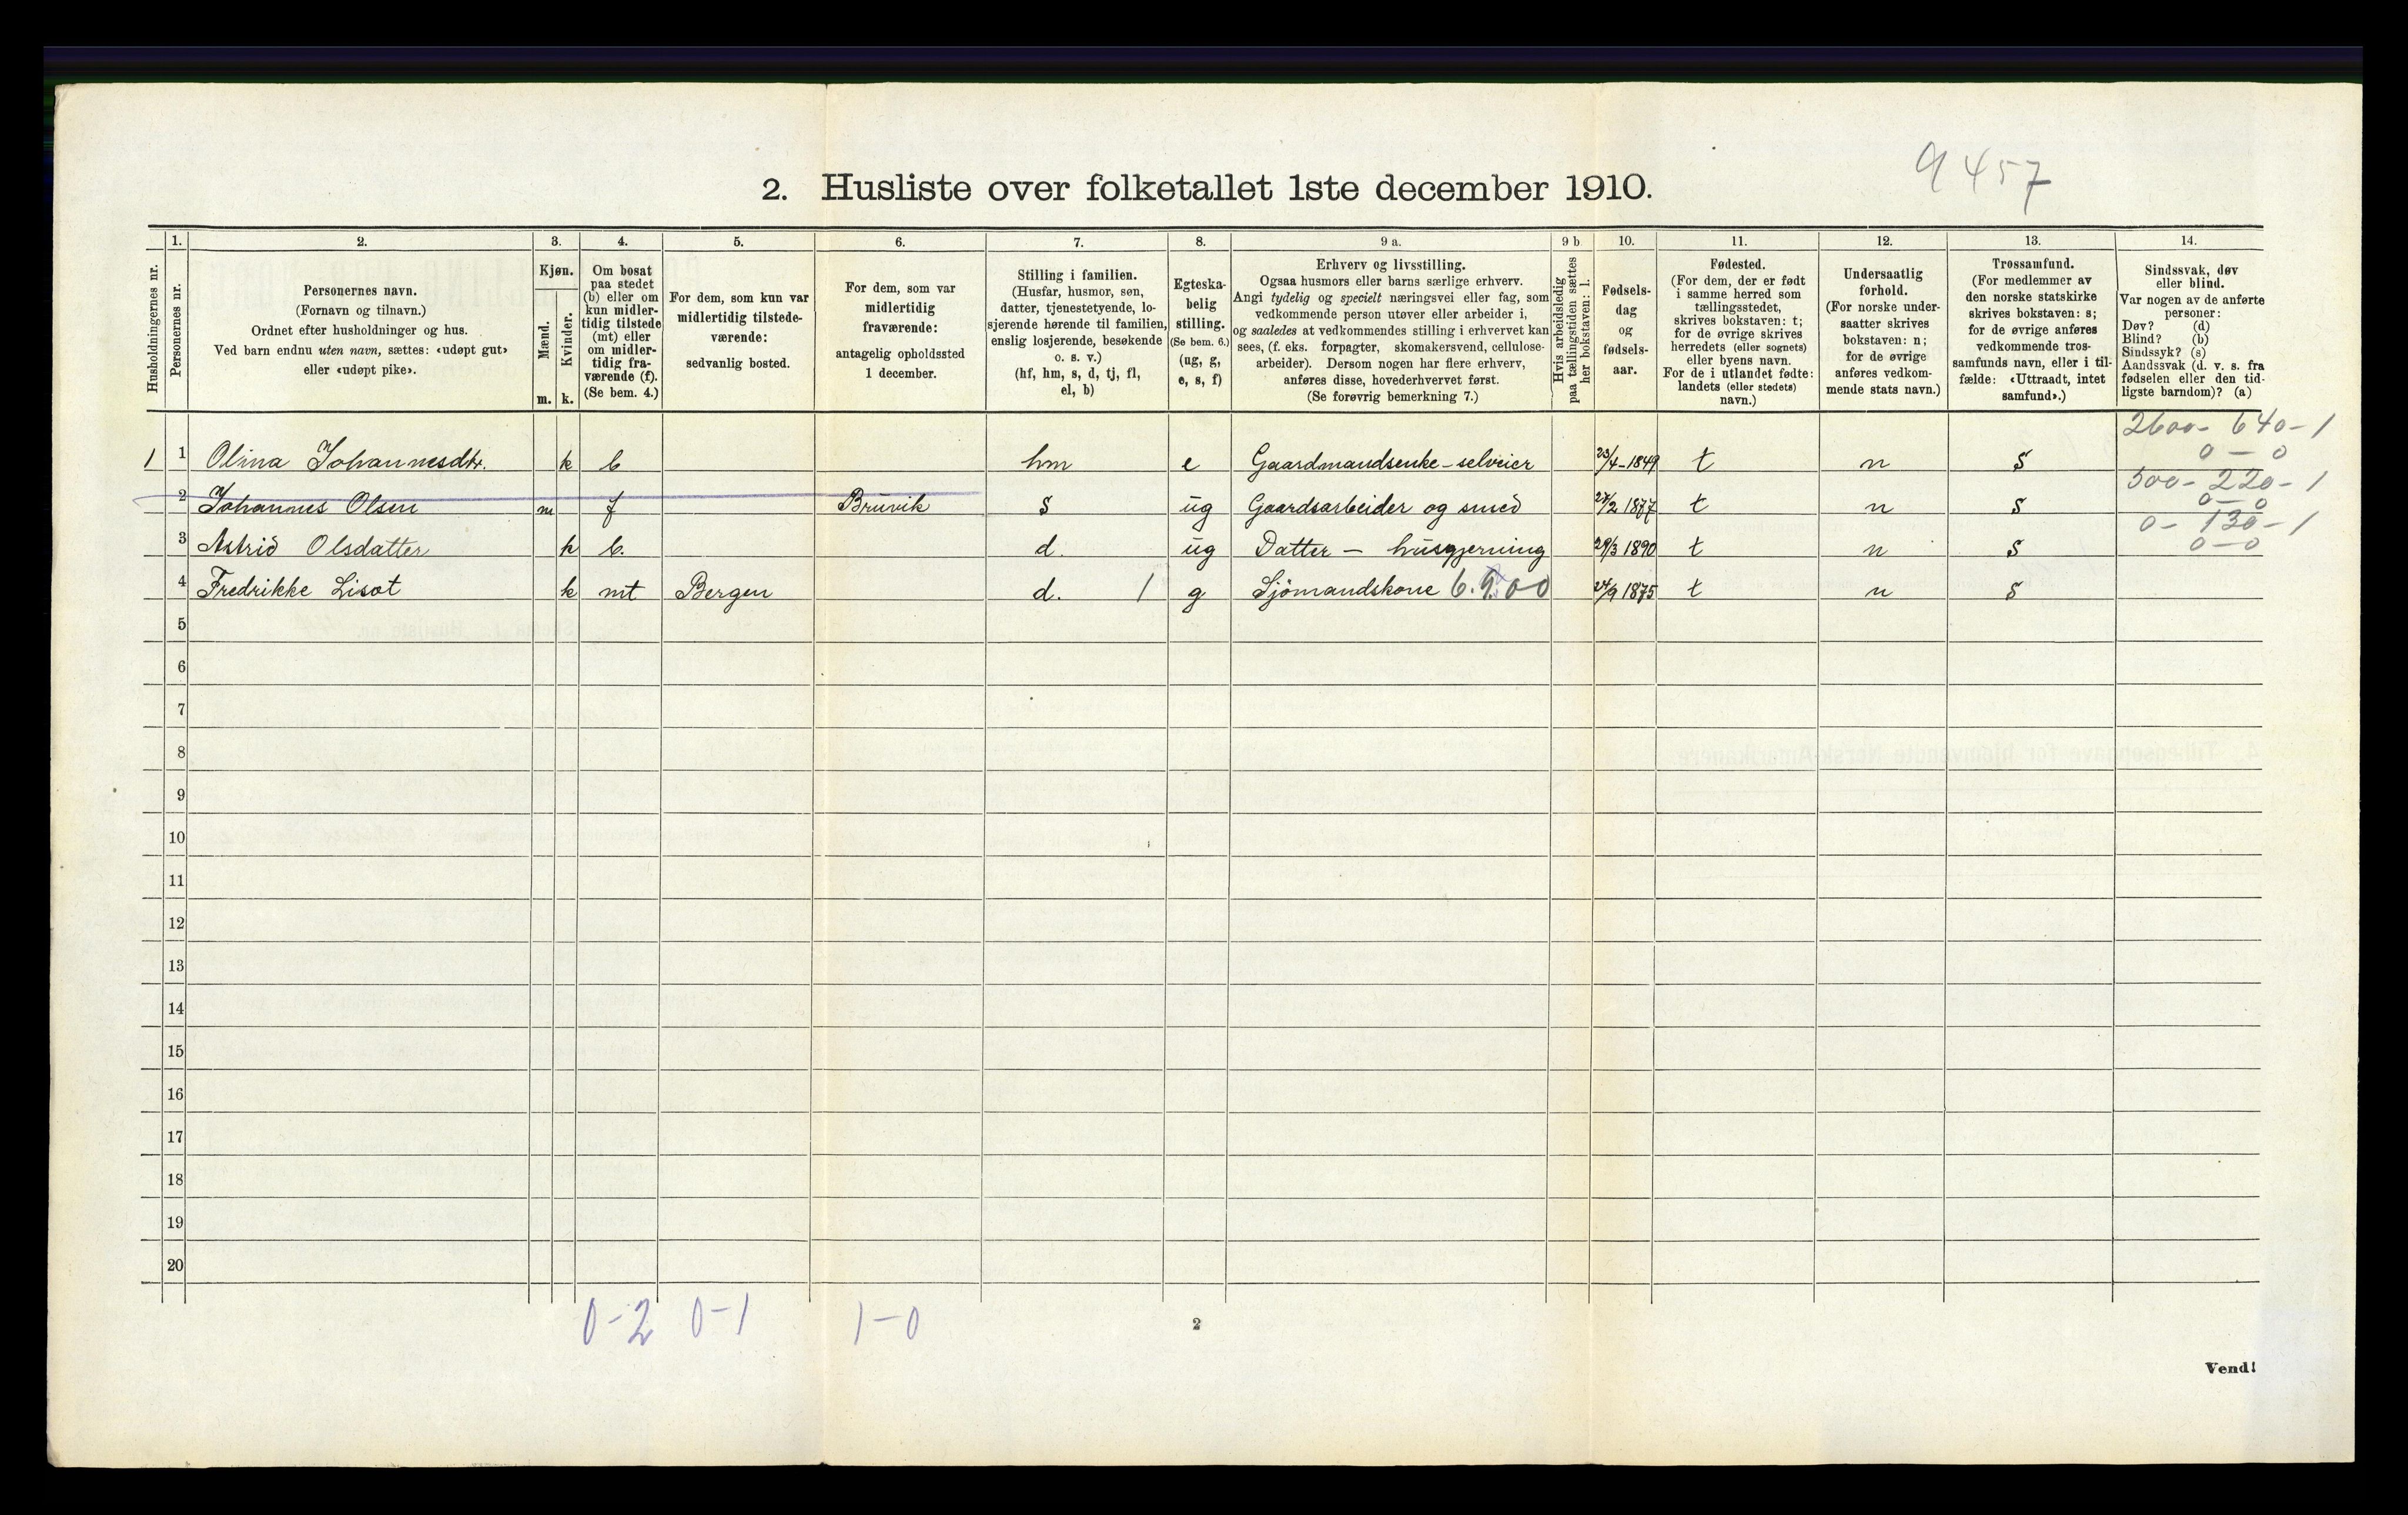 9457
2. Husliste over folketallet 1ste december 1910.
1. 2. 3. 4. 5. 6. 7. 8. 9 a. 9 b 10. 11. 12. 13. 14.
Husholdningernes nr.
Personernes nr.
Personernes navn.
(Fornavn og tilnavn.)
Ordnet efter husholdninger og hus.
Ved barn endnu uten navn, sættes: «udøpt gut»
eller «udøpt pike».
Kjøn.
Mænd.
Kvinder.
m. k.
Om bosat
paa stedet
(b) eller om
kun midler-
tidig tilstede
(mt) eller
om midler-
tidig fra-
værende (f).
(Se bem. 4.)
For dem, som kun var
midlertidig tilstede-
værende:
sedvanlig bosted.
For dem, som var
midlertidig
fraværende:
antagelig opholdssted
1 december.
Stilling i familien.
(Husfar, husmor, søn,
datter, tjenestetyende, lo-
sjerende hørende til familien,
enslig losjerende, besøkende
o. s. v.)
(hf, hm, s, d, tj, fl,
el, b)
Egteska-
belig
stilling.
(Se bem. 6.)
(ug, g,
e, s, f)
Erhverv og livsstilling.
Ogsaa husmors eller barns særlige erhverv.
Angi tydelig og specielt næringsvei eller fag, som
vedkommende person utøver eller arbeider i,
og saaledes at vedkommendes stilling i erhvervet kan
sees, (f. eks. forpagter, skomakersvend, cellulose-
arbeider). Dersom nogen har flere erhverv,
anføres disse, hovederhvervet først.
(Se forøvrig bemerkning 7.)
Hvis arbeidsledig
paa tællingstiden sættes
her bokstaven: l.
Fødsels-
dag
og
fødsels-
aar.
Fødested.
(For dem, der er født
i samme herred som
tællingsstedet,
skrives bokstaven: t;
for de øvrige skrives
herredets (eller sognets)
eller byens navn.
For de i utlandet fødte:
landets (eller stedets)
navn.)
Undersaatlig
forhold.
(For norske under-
saatter skrives
bokstaven: n;
for de øvrige
anføres vedkom-
mende stats navn.)
Trossamfund.
(For medlemmer av
den norske statskirke
skrives bokstaven: s;
for de øvrige anføres
vedkommende tros-
samfunds navn, eller i til-
fælde: «Uttraadt, intet
samfund».)
Sindssvak, døv
eller blind.
Var nogen av de anførte
personer:
Døv? (d)
Blind? (b)
Sindssyk? (s)
Aandssvak (d. v. s. fra
fødselen eller den tid-
ligste barndom)? (a)
2600- 640-1
1 1 Olina Johannesdtr. k b hm e Gaardmandsenke - selveier 23/4-1849 t n S 0-0
500- 220-1
2 Johannes Olsen m f Bruvik S ug Gaardsarbeider og smed 27/2 1877 t n S 0-0
0- 130-1
3 Astrid Olsdatter k b. d. ug Datter - husgjerning 29/3 1890 t n S 0-0
4 Fredrikke Lisot k mt Bergen d. 1 g Sjömandskone 6.9.00 24/9 1875 t n S
5
6
7
8
9
10
11
12
13
14
15
16
17
18
19
20
0-2 0-1 1-0
2
Vend!